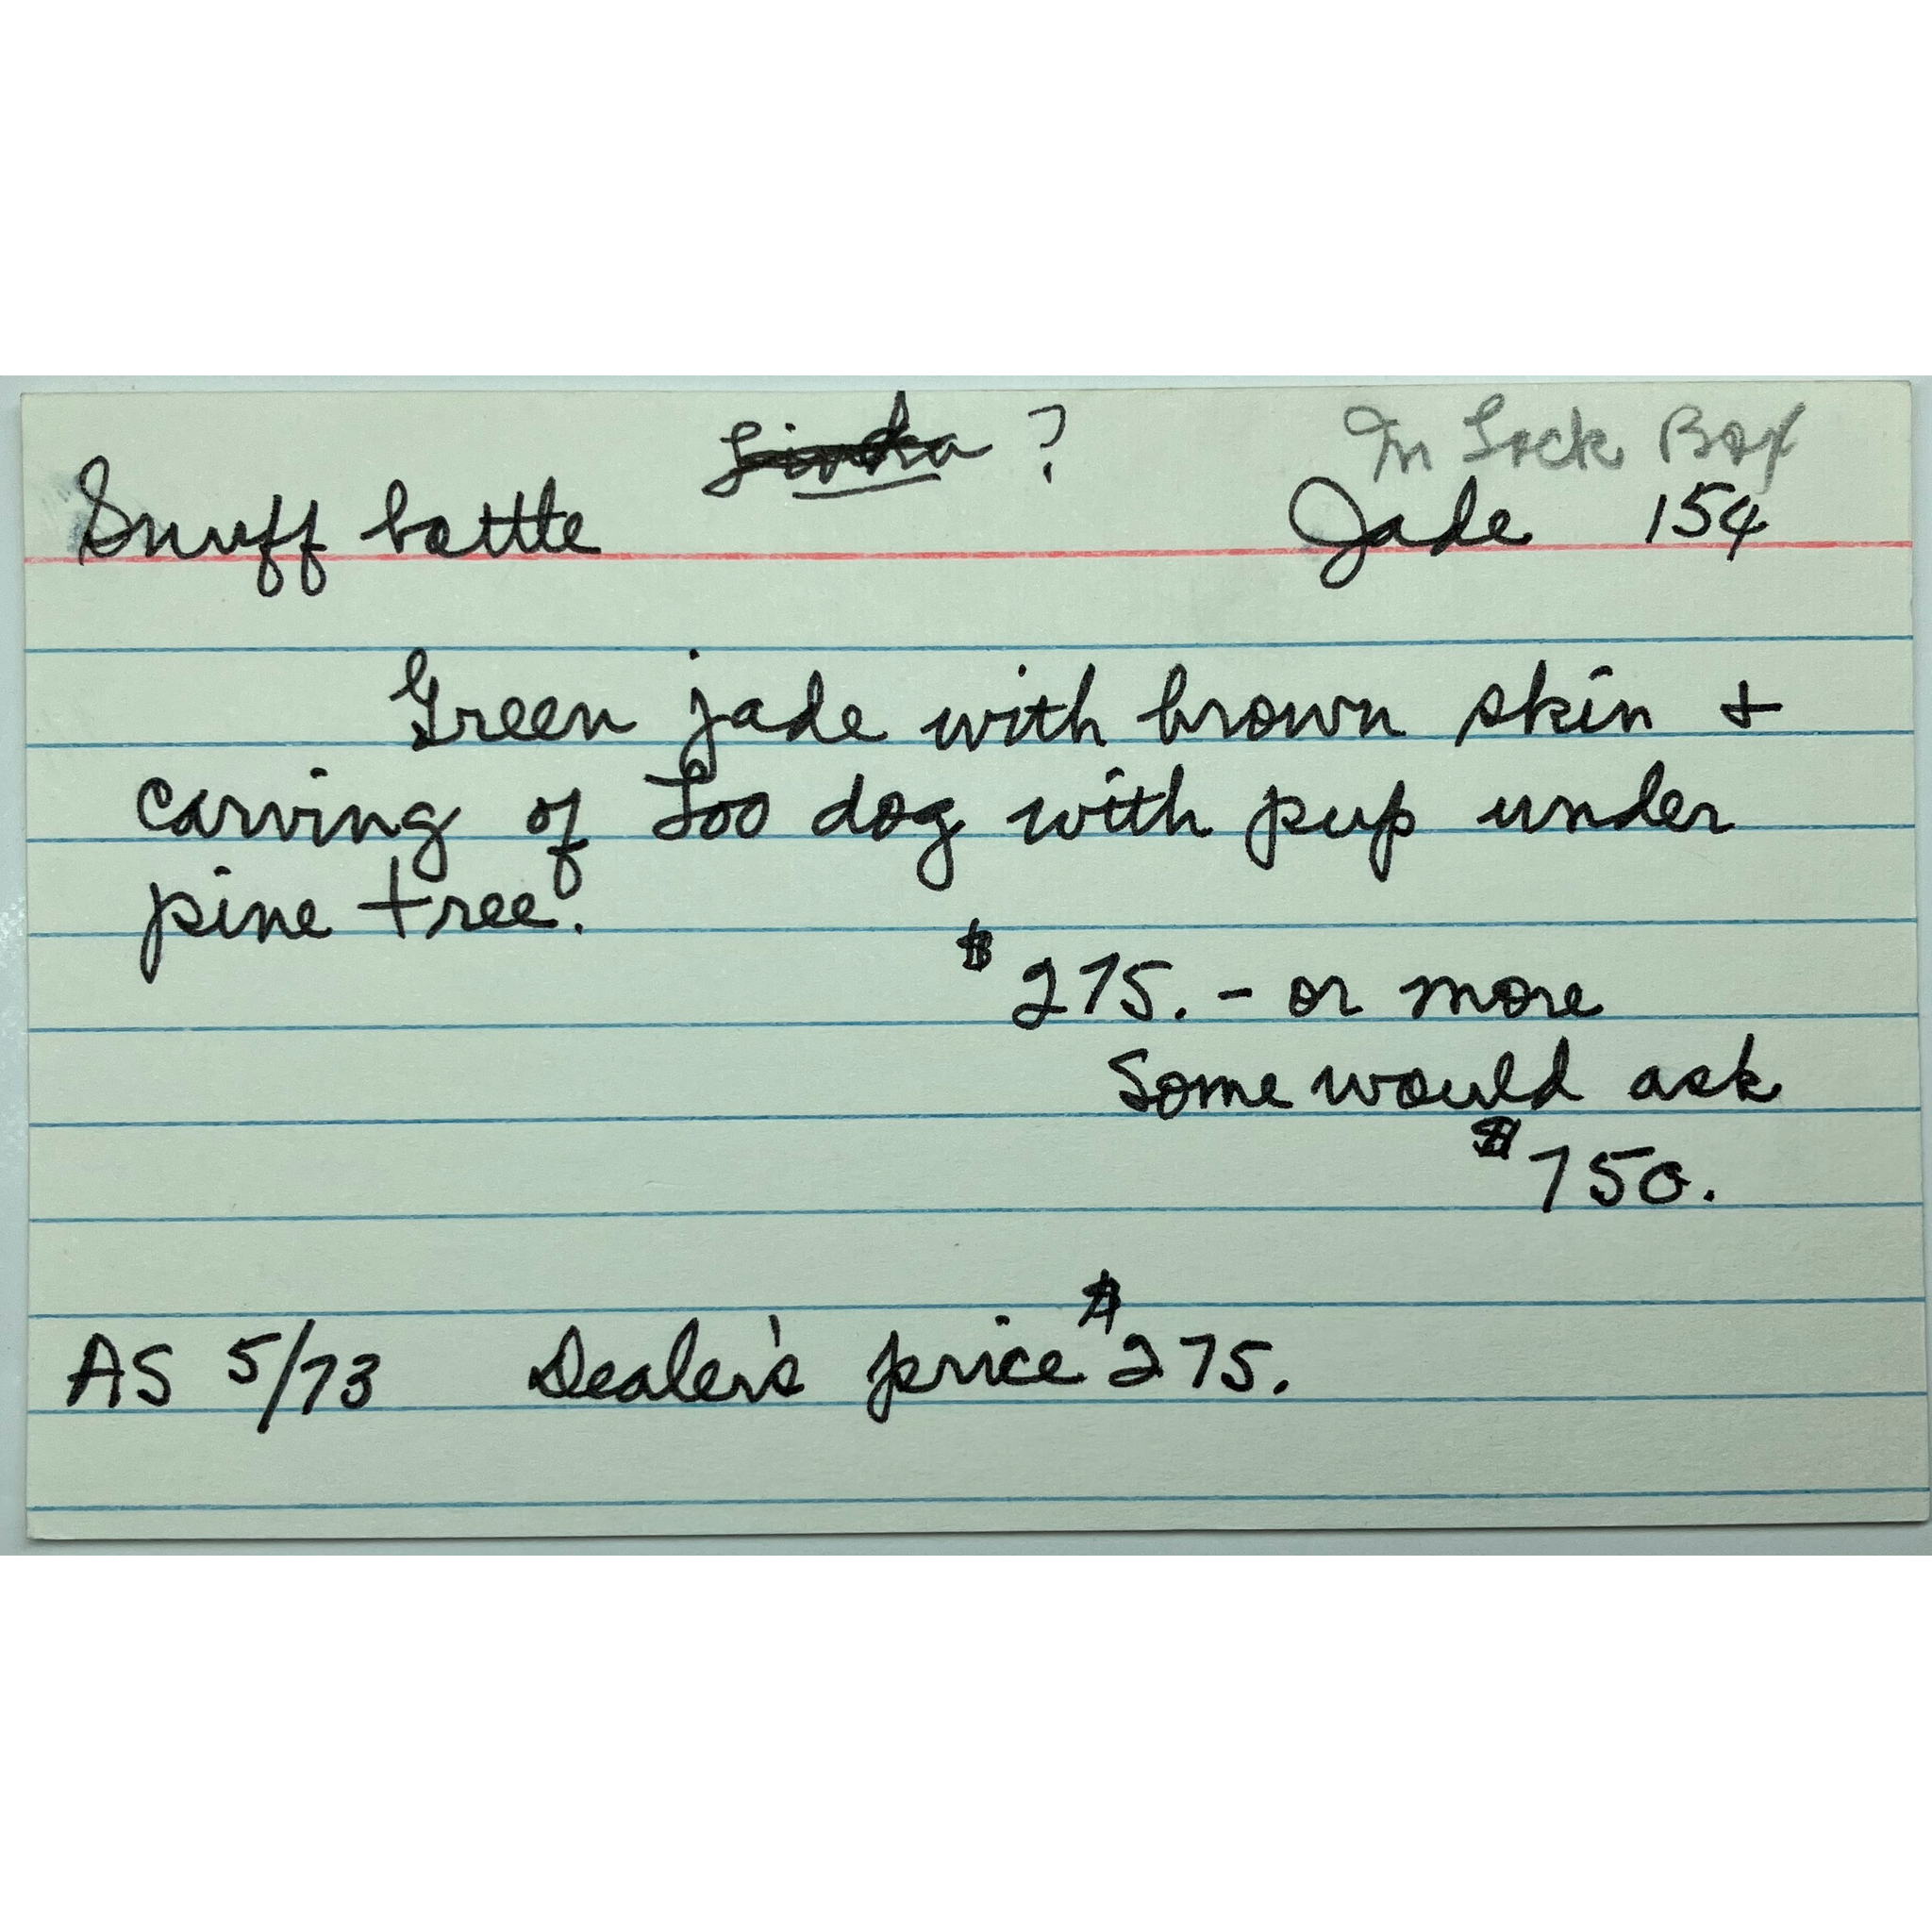 Linda ?
In Lock Box
Snuff bottle Jade 154
Green jade with brown skin +
carving of Foo dog with pup under
pine tree.
$275. - or more
Some would ask
$750.
AS 5/73 Dealer's price $275.